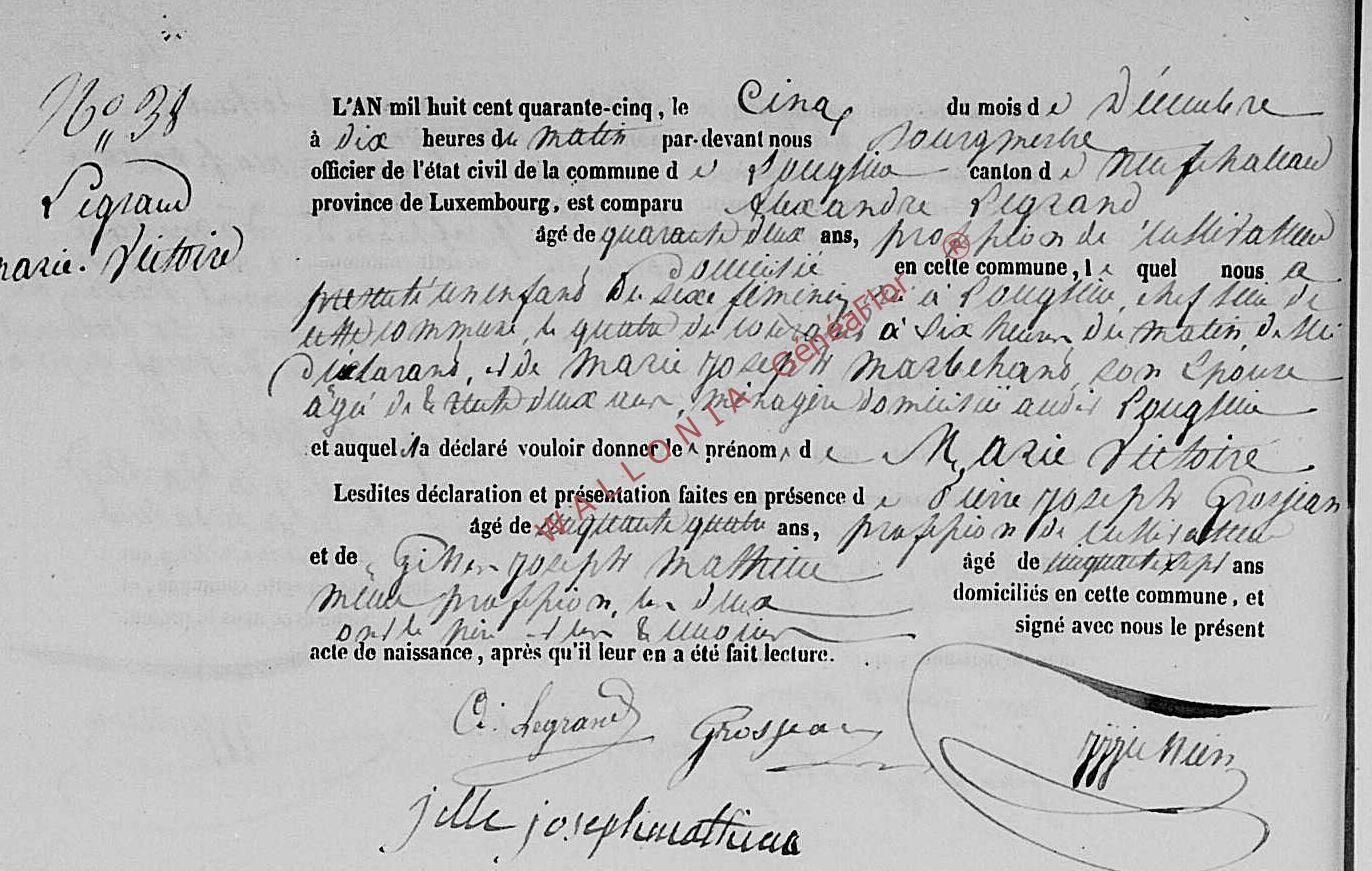 N° 38
Legrand
marie. Victoire
L'AN mil huit cent quarante-cinq, le Cinq du mois de Décembre
à dix heures du matin par-devant nous bourgmestre
officier de l'état civil de la commune de Longlier canton de Neufchateau
province de Luxembourg, est comparu Alexandre Legrand
âgé de quarante deux ans, profession de cultivateur
domicilié en cette commune, le quel nous a
présenté un enfant du sexe féminin, né à Longlier, chef lieu de
cette commune, le quatre du courant à six heures du matin, de lui
déclarant, et de Marie Joseph Marechand, son épouse
agée de trente deux ans, ménagère domiciliée audit Longlier
et auquel il a déclaré vouloir donner le prénom de Marie Victoire
Lesdites déclaration et présentation faites en présence de Pierre Joseph Grosjean
âgé de cinquante quatre ans, profession de cultivateur
et de Gilles Joseph Mathieu âgé de cinquante sept ans
même profession, les deux domiciliés en cette commune, et
ont le père et les témoins signé avec nous le présent
acte de naissance, après qu'il leur en a été fait lecture.
A. Legrand Grosjean
jille joseph mathieu
WALLONIA GénéaFlor ®